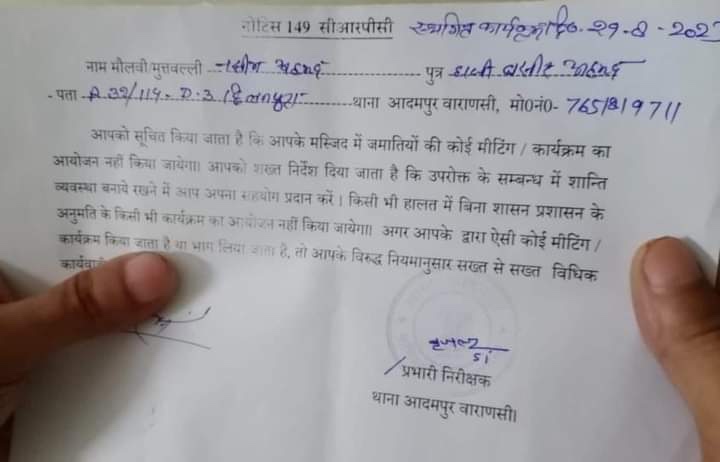 नोटिस 149 सीआरपीसी स्थगित कार्यक्रम दि0. 29-8-202
नाम मौलवी/मुत्तवल्ली नसीम अहमद पुत्र हाजी बसीर अहमद
पता A 32/114- D:3 छित्तनपुरा थाना आदमपुर वाराणसी, मो0नं0-
आपको सूचित किया जाता है कि आपके मस्जिद में जमातियों की कोई मीटिंग / कार्यक्रम का
आयोजन नहीं किया जायेगा। आपको शख्त निर्देश दिया जाता है कि उपरोक्त के सम्बन्ध में शान्ति
व्यवस्था बनाये रखने में आप अपना सहयोग प्रदान करें। किसी भी हालत में बिना शासन प्रशासन के
अनुमति के किसी भी कार्यक्रम का आयोजन नहीं किया जायेगा। अगर आपके द्वारा ऐसी कोई मीटिंग /
कार्यक्रम किया जाता है या भाग लिया जाता है, तो आपके विरुद्ध नियमानुसार सख्त से सख्त विधिक
कार्यवाही
SI
प्रभारी निरीक्षक
थाना आदमपुर वाराणसी।